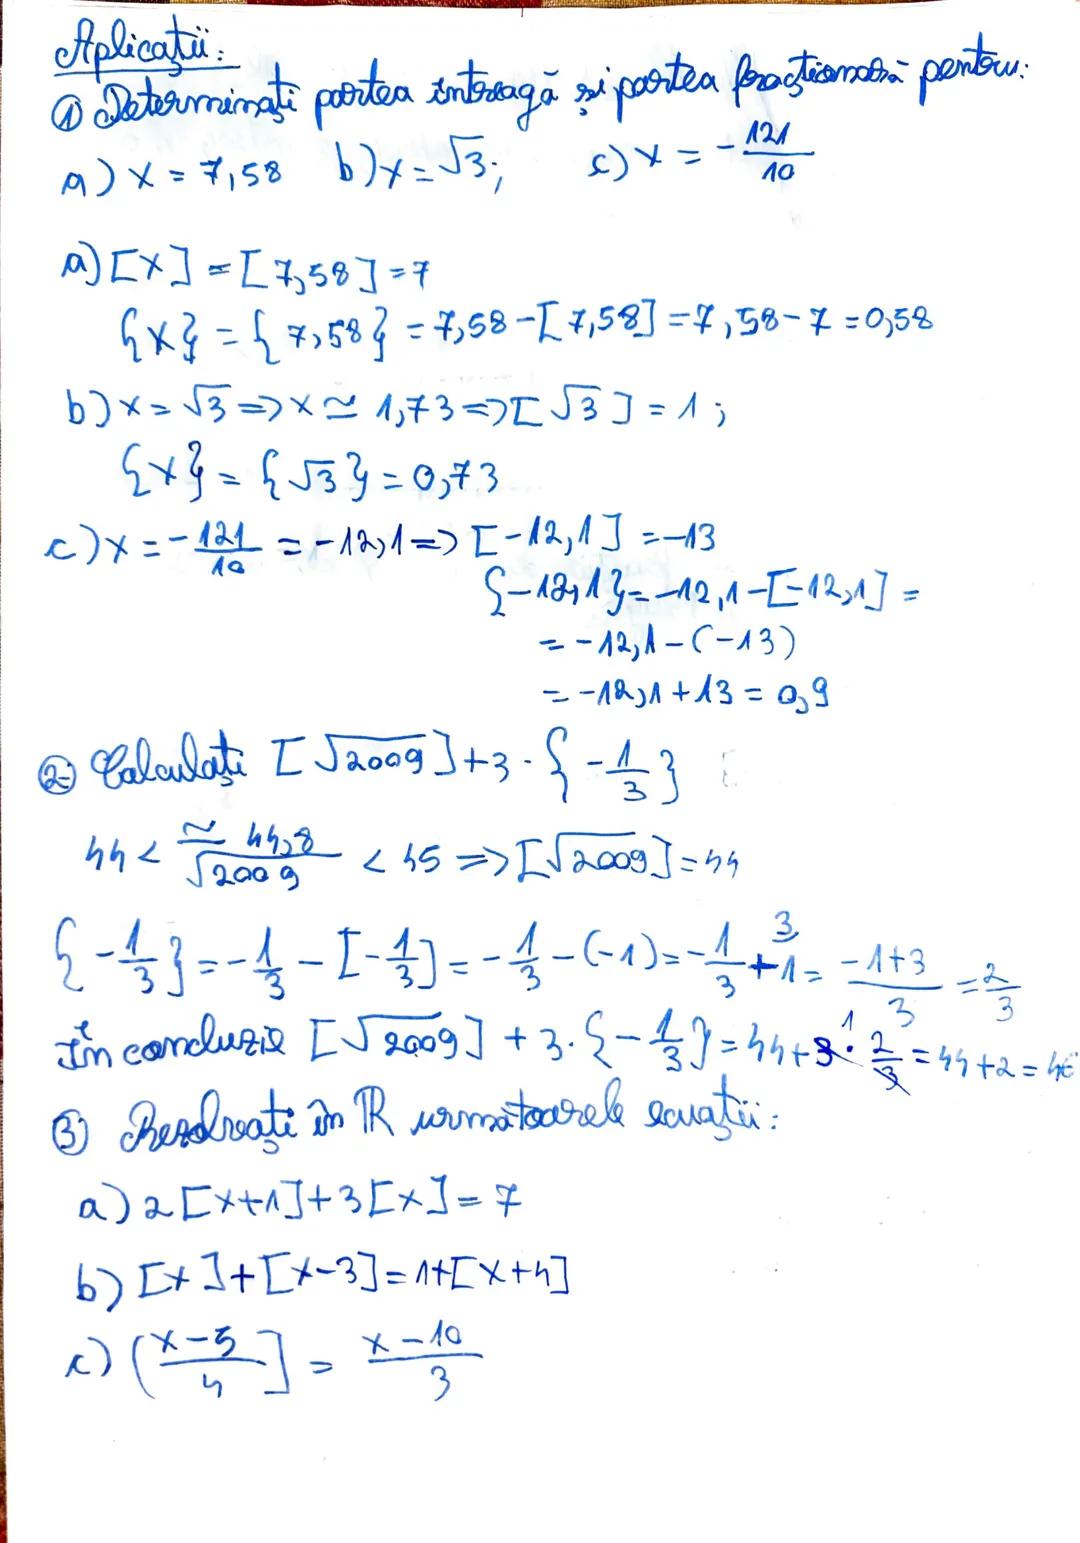 Aplicații:
① Determinați partea întreagă și partea fracționară pentru:
a) x = 7,58 b) x = √3; c) x = -121/10
a) [x] = [7,58] = 7
{x} = {7,58} = 7,58 - [7,58] = 7,58 - 7 = 0,58
b) x = √3 => x ≃ 1,73 => [√3] = 1;
{x} = {√3} = 0,73
c) x = -121/10 = -12,1 => [-12,1] = -13
{-12,1} = -12,1 - [-12,1] =
= -12,1 - (-13)
= -12,1 + 13 = 0,9
② Calculați [√2009] + 3 · {-1/3}
≃ 44,8
44 < √2009 < 45 => [√2009] = 44
{-1/3} = -1/3 - [-1/3] = -1/3 - (-1) = -1/3 + ³⁾1 = (-1+3)/3 = 2/3
În concluzie [√2009] + 3 · {-1/3} = 44 + 3¹ · 2/3 = 44 + 2 = 46
③ Rezolvați în ℝ următoarele ecuații:
a) 2[x+1] + 3[x] = 7
b) [x] + [x-3] = 1 + [x+4]
c) (x-5/4] = x-10/3